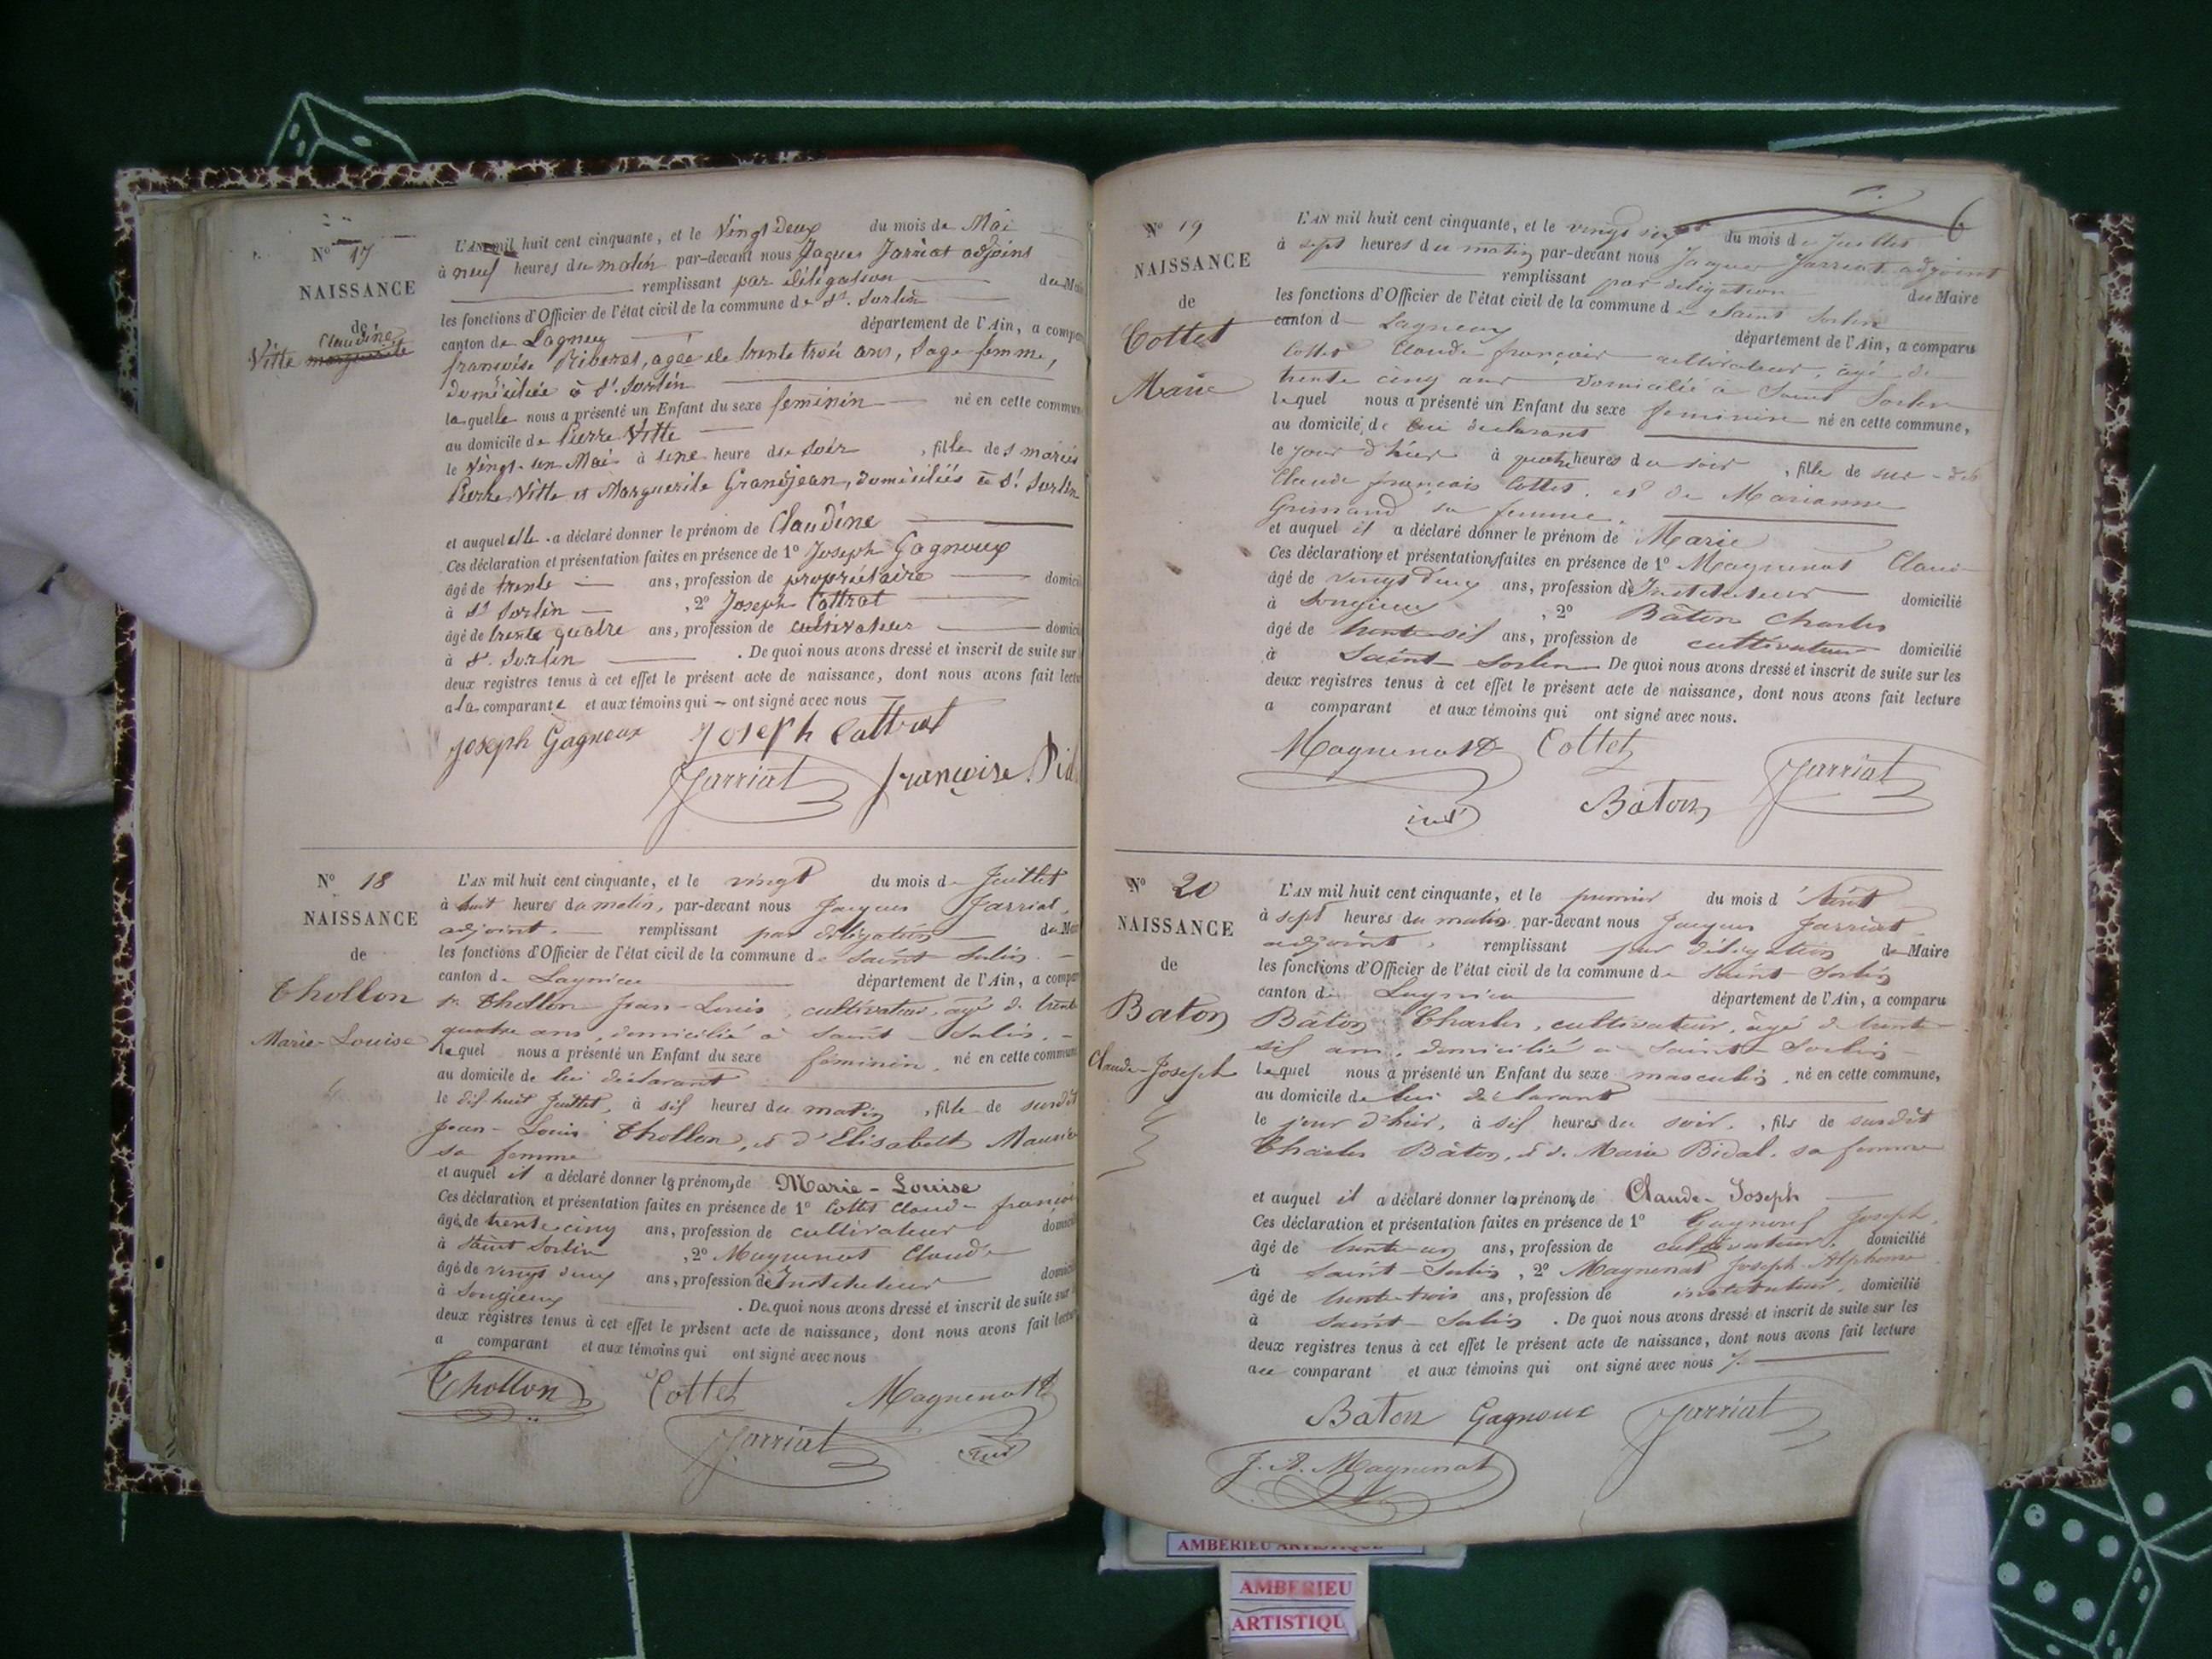 N° 17
NAISSANCE
de
Claudine
Vitte marguerite
L'AN mil huit cent cinquante, et le Vingt Deux du mois de Mai
à neuf heures du matin par-devant nous Jaques Jarriat adjoint
remplissant par délégation du Mai
les fonctions d'Officier de l'état civil de la commune de St. Sorlin
canton de Lagneu département de l'Ain, a compa
françoise, agée de trente trois ans, Sage femme,
domiciliée à St. Sorlin
laquelle nous a présenté un Enfant du sexe feminin né en cette commun
au domicile de Pierre Vitte
le Vingt-un Mai à une heure du soir, fille des mariés
Pierre Vitte et Marguerite Grandjean, domiciliés à St. Sorlin
et auquel elle a déclaré donner le prénom de Claudine
Ces déclaration et présentation faites en présence de 1° Joseph Gagnoux
âgé de trente ans, profession de propriétaire domicil
à St Sorlin, 2° Joseph Cottrat
âgé de trente quatre ans, profession de cultivateur domicil
à St. Sorlin. De quoi nous avons dressé et inscrit de suite sur
deux registres tenus à cet effet le présent acte de naissance, dont nous avons fait lectu
a la comparante et aux témoins qui ont signé avec nous
Joseph Gagnoux Joseph Cattrat
Jarriat françoise
N° 18
NAISSANCE
de
Thollon
Marie-Louise
L'AN mil huit cent cinquante, et le vingt du mois de Juillet
à huit heures du matin, par-devant nous Jacques Jarriat,
adjoint. remplissant par délégation du Mai
les fonctions d'Officier de l'état civil de la commune de Saint Sorlin.
canton de Lagnieu département de l'Ain, a compar
Sr Thollon Jean-Louis, cultivateur, agé de trente
quatre ans, domicilié à Saint-Sorlin.
lequel nous a présenté un Enfant du sexe féminin, né en cette commun
au domicile de lui déclarant
le dix-huit Juillet, à six heures du matin, fille de susdit
Jean-Louis Thollon, et d'Elisabeth
sa femme
et auquel il a déclaré donner les prénoms de Marie-Louise
Ces déclaration et présentation faites en présence de 1° Cottet Claude françoi
âgé de trente cinq ans, profession de cultivateur domicil
à Saint Sorlin, 2° Magnenat Claude
âgé de vingt deux ans, profession d'Instituteur domicil
à Songieux. De quoi nous avons dressé et inscrit de suite sur
deux registres tenus à cet effet le présent acte de naissance, dont nous avons fait lectu
a comparant et aux témoins qui ont signé avec nous
Thollon Cottet Magnenat
Jarriat inst
6
N° 19
NAISSANCE
de
Cottet
Marie
L'AN mil huit cent cinquante, et le vingt sept du mois de Juillet
à sept heures du matin par-devant nous Jacques Jarriat adjoint
remplissant par délégation du Maire
les fonctions d'Officier de l'état civil de la commune de Saint Sorlin
canton de Lagneux département de l'Ain, a comparu
Cottet Claude françois cultivateur, âgé de
trente cinq ans domicilié à Saint Sorlin
lequel nous a présenté un Enfant du sexe feminin né en cette commune,
au domicile de lui declarant
le jour d'hier à quatre heures du soir, fille de sus-dit
Claude françois Cottet, et de Marianne
Grimand sa femme.
et auquel il a déclaré donner le prénom de Marie
Ces déclaration et présentation faites en présence de 1° Magnenat Claude
âgé de vingt deux ans, profession d'Instituteur domicilié
à Songieux, 2° Bâton Charles
âgé de trente-six ans, profession de cultivateur domicilié
à Saint-Sorlin De quoi nous avons dressé et inscrit de suite sur les
deux registres tenus à cet effet le présent acte de naissance, dont nous avons fait lecture
a comparant et aux témoins qui ont signé avec nous.
Magnenat Cottet Jarriat
inst Bâton
N° 20
NAISSANCE
de
Baton
Claude-Joseph
L'AN mil huit cent cinquante, et le premier du mois d'Août
à sept heures du matin par-devant nous Jacques Jarriat
adjoint, remplissant par délégation de Maire
les fonctions d'Officier de l'état civil de la commune de Saint-Sorlin
canton de Lagnieu département de l'Ain, a comparu
Bâton Charles, cultivateur, âgé de trente
six ans, domicilié à Saint-Sorlin
lequel nous a présenté un Enfant du sexe masculin, né en cette commune,
au domicile de lui déclarant
le jour d'hier, à six heures du soir, fils de susdit
Charles Bâton, et de Marie Bidal, sa femme
et auquel il a déclaré donner les prénoms de Claude-Joseph
Ces déclaration et présentation faites en présence de 1° Gagnoux Joseph,
âgé de trente-un ans, profession de cultivateur, domicilié
à Saint-Sorlin, 2° Magnenat Joseph-Alphonse
âgé de trente-trois ans, profession de instituteur, domicilié
à Saint-Sorlin. De quoi nous avons dressé et inscrit de suite sur les
deux registres tenus à cet effet le présent acte de naissance, dont nous avons fait lecture
au comparant et aux témoins qui ont signé avec nous
Baton Gagnoux Jarriat
J. A. Magnenat
AMBERIEU ARTISTIQUE
AMBERIEU
ARTISTIQU